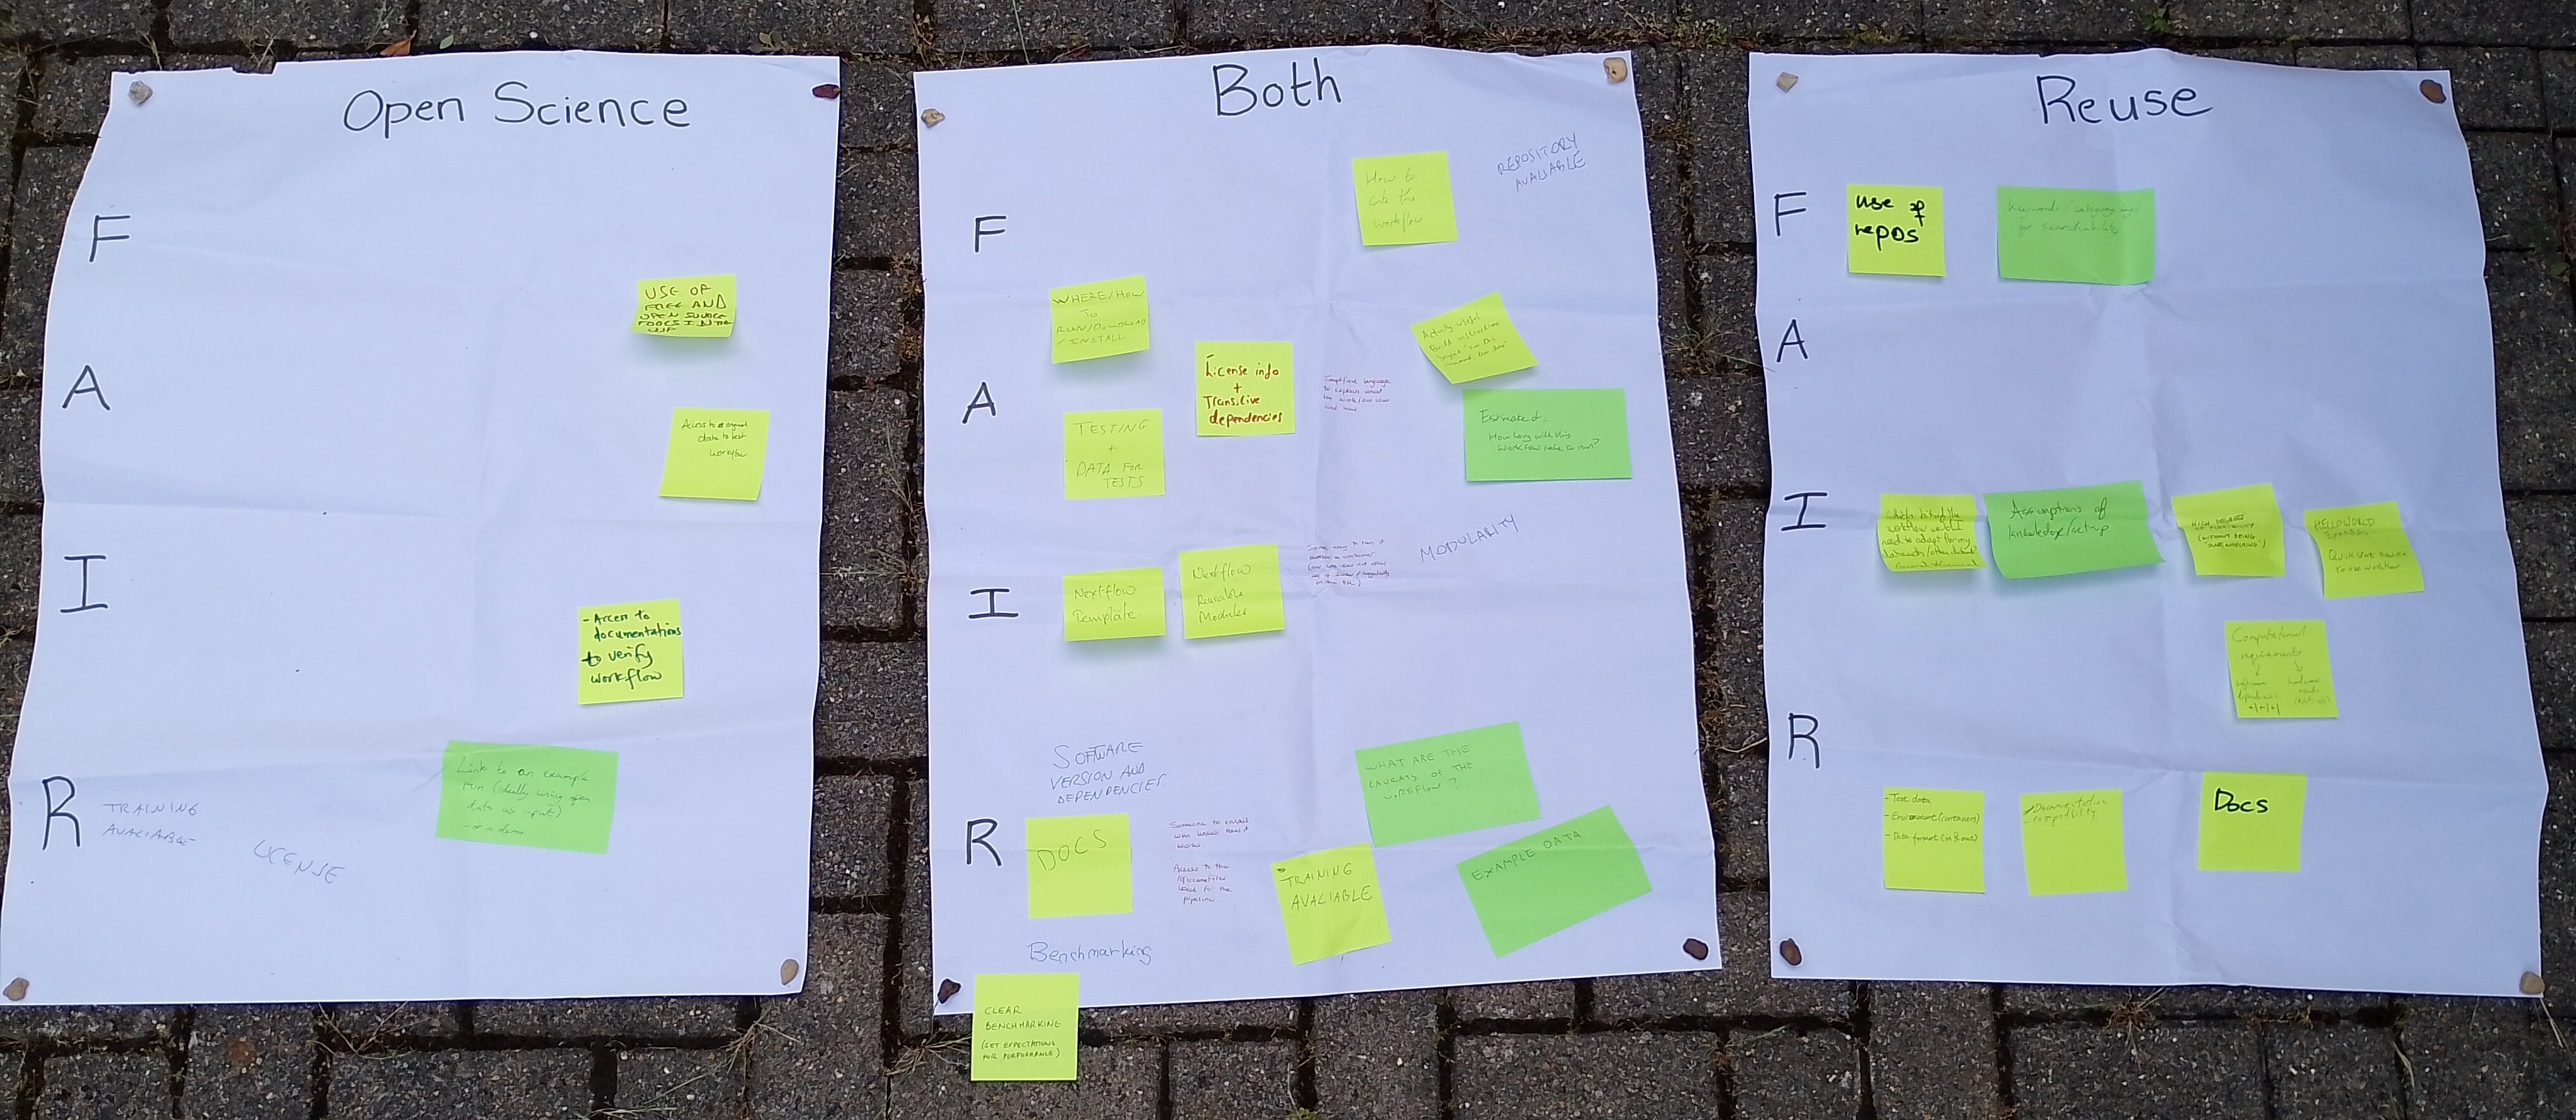 Open Science
F
USE OF
FREE AND
OPEN SOURCE
TOOLS IN THE
A
Access to original
data to test
workflow
I
- Access to
documentations
to verify
workflow
R
TRAINING
AVALIABLE
LICENSE
Link to an example
run (ideally using open
data as input)
- or a demo
Both
F
How to
cite this
workflow
REPOSITORY
AVALIABLE
WHERE/HOW
TO
RUN/DOWNLOAD
/INSTALL
A
License info
+
Transitive
dependencies
Simplified language
to explain what
Actually useful
Build instructions
TESTING
+
DATA FOR
TESTS
Estimate of:
How long will this
workflow take to run?
I
Nextflow
Template
Nextflow
Reusable
Modules
MODULARITY
SOFTWARE
VERSION AND
DEPENDENCIES
R
DOCS
Someone to email
who knows how it
works
Access to the
used for the
pipeline
WHAT ARE THE
CAVEATS OF THE
WORKFLOW?
TRAINING
AVALIABLE
EXAMPLE DATA
Benchmarking
CLEAR
BENCHMARKING
(SET EXPECTATIONS
FOR PERFORMANCE)
Reuse
F
use of
repos
Keywords/category
for searchability
A
I
Which bits of the
workflow would I
need to adapt for my
Assumptions of
knowledge/setup
HIGH DEGREE
OF FLEXIBILITY
(WITHOUT BEING
OVERWHELMING)
HELLO WORLD
EXAMPLE
Computational
requirements
software
dependencies
hardware
needs
R
- Test data
- Environment (containers)
- Data format (in & out)
- Documentation
- compatibility
Docs